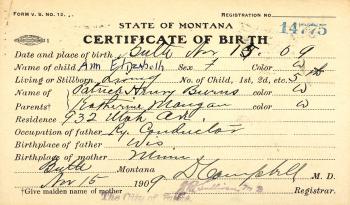 FORM V. S. NO. 12. REGISTRATION NO.
STATE OF MONTANA 14775
CERTIFICATE OF BIRTH
Date and place of birth Butte Nov 15 09
Name of child Ann Elizabeth Sex F Color W
Living or Stillborn Living No. of Child, 1st, 2d, etc. 5th
Name of Patrick Henry Burns color W
Parents† Katherine Mangan color W
Residence 932 Utah Av.
Occupation of father Ry. Conductor
Birthplace of father Wis
Birthplace of mother Minn
Butte Montana D Campbell M. D.
Nov 15 1909 Registrar.
*Give maiden name of mother The City of Butte.